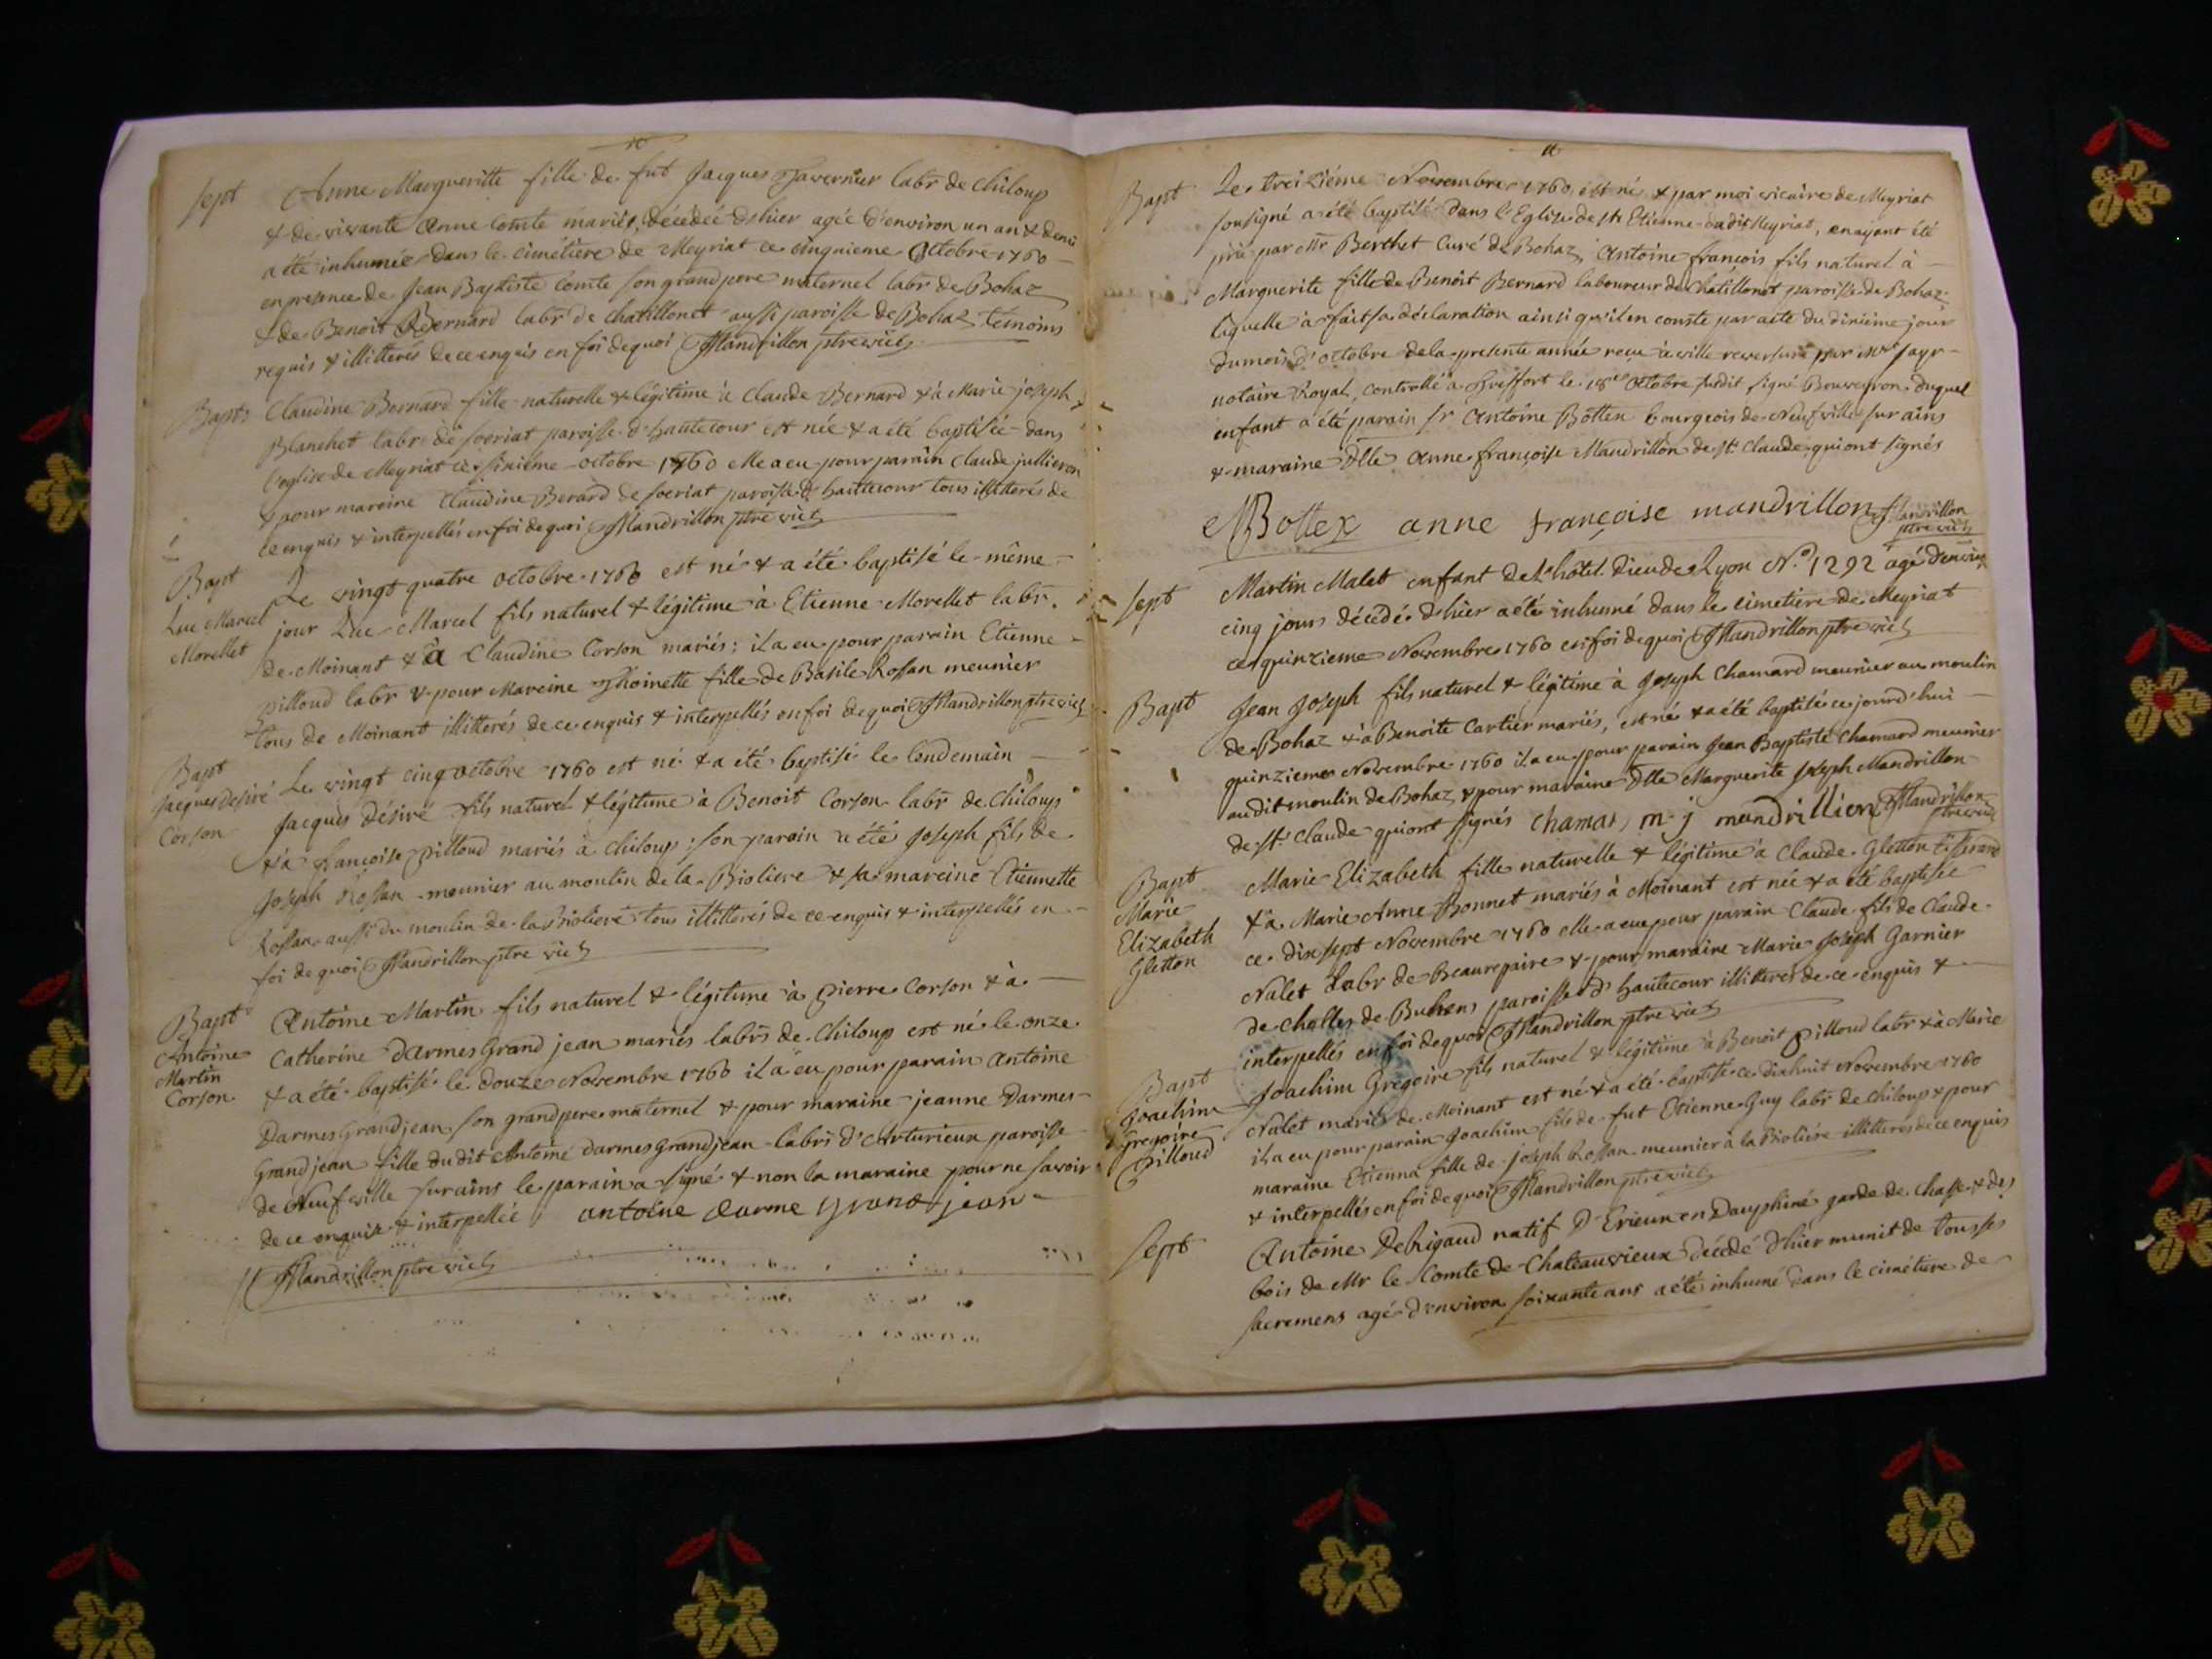 10
sept
Anne Margueritte fille de fut Jacques Tavernier labr de chiloup
& de vivante Anne Comte mariés, décédée d'hier agée d'environ un an & demi
a été inhumée dans le cimétiere de Meyriat ce cinquieme Octobre 1760
en presence de Jean Baptiste Comte son grand pere maternel labr de Bohaz
& de Benoit Bernard labr de chatillonet aussi paroisse de Bohaz témoins
requis & illitterés de ce enquis en foi de quoi Mandrillon ptre vic
Bapt
Claudine Bernard fille naturelle & légitime à Claude Bernard & à Marie joseph
Blanchet labr de soeriat paroisse d'hautecour est née & a été baptisée dans
l'eglise de Meyriat ce sixiéme octobre 1760 elle a eu pour parain Claude jullieron
& pour maraine Claudine Berard de soeriat paroisse d'hautecour tous illitterés de
ce enquis & interpellés en foi de quoi Mandrillon ptre vic
Bapt
Luc Marcel
Morellet
Le vingt quatre octobre 1760 est né & a été baptisé le même
jour Luc Marcel fils naturel & légitime à Etienne Morellet labr.
de Moinant & à Claudine Corson mariés; il a eu pour parain Etienne
pilloud labr & pour Mareine Thoinette fille de Basile Rossan meunier
tous de Moinant illitterés de ce enquis & interpellés en foi de quoi Mandrillon ptre vic
Bapt
Jacques Desiré
Corson
Le vingt cinq octobre 1760 est né & a été baptisé le lendemain
Jacques désiré fils naturel & légitime à Benoit Corson labr de Chiloup
& à françoise pilloud mariés à chiloup; son parain a été Joseph fils de
Joseph Rossan meunier au moulin de la Bioliere & sa mareine Etiennette
Rossan aussi du moulin de la Bioliere tous illitterés de ce enquis & interpellés en
foi de quoi Mandrillon ptre vic
Bapt
Antoine
Martin
Corson
Antoine Martin fils naturel & légitime à pierre Corson & à
Catherine Darmes Grand jean mariés labrs de Chiloup est né le onze
& a été baptisé le douze Novembre 1760 il a eu pour parain Antoine
Darmes Grand jean son grand pere maternel & pour maraine jeanne Darmes
Grand jean fille du dit Antoine Darmes Grand jean labr d'Arturieux paroisse
de Neufville sur ains le parain a signé & non la maraine pour ne savoir
de ce enquise & interpellée antoine darme grand jean
Mandrillon ptre vic
11
Bapt
Le treiziéme Novembre 1760 est né & par moi vicaire de Meyriat
sousigné a été baptisé dans l'Eglise de st Etienne dudit Meyriat, en ayant été
prié par Mr Berthet Curé de Bohaz, Antoine françois fils naturel à
Marguerite fille de Benoit Bernard laboureur de Châtillonet paroisse de Bohaz
laquelle a fait sa déclaration ainsi qu'il en conste par acte du dixième jour
du mois d'octobre de la presente année reçu à ville reversure par Me Jayr
notaire Royal, controllé à Treffort le 18e Octobre susdit signé Bouveyron. duquel
enfant a été parain sr Antoine Bottex bourgeois de Neufville sur ains
& maraine Dlle Anne françoise Mandrillon de st Claude qui ont signés
Bottex anne françoise mandrillon Mandrillon
ptre vic
sept
Martin Malet enfant de L'hôtel Dieu de Lyon N.o 1292 agé d'environ
cinq jours décédé d'hier a été inhumé dans le cimetiere de Meyriat
ce quinzieme Novembre 1760 en foi de quoi Mandrillon ptre vic
Bapt
Jean Joseph fils naturel & légitime à Joseph Chamard meunier au moulin
de Bohaz & à Benoite Cartier mariés, est né & a été baptisé ce jourd'hui
quinzieme Novembre 1760 il a eu pour parain Jean Baptiste Chamard meunier
au dit moulin de Bohaz & pour maraine Dlle Marguerite Joseph Mandrillon
de st Claude qui ont signés chamar m. j mandrillion Mandrillon
ptre vic
Bapt
Marie
Elizabeth
Gletton
Marie Elizabeth fille naturelle & légitime à Claude Gletton tisserand
& à Marie Anne Bonnet mariés à Moinant est née & a été baptisée
ce dix sept Novembre 1760 elle a eu pour parain Claude fils de Claude
Nalet labr de Beaurepaire & pour maraine Marie Joseph Garnier
de challes de Buhens paroisse d'hautecour illitterés de ce enquis &
interpellés en foi de quoi Mandrillon ptre vic
Bapt
Joachim
Gregoire
Pilloud
Joachim Gregoire fils naturel & légitime à Benoit Pilloud labr & à Marie
Nalet mariés de Moinant est né & a été baptisé ce dixhuit Novembre 1760
il a eu pour parain Joachim fils de fut Etienne Guy labr de chiloup & pour
maraine Etienna fille de joseph Rossan meunier à la Bioliére illitterés de ce enquis
& interpellés en foi de quoi Mandrillon ptre vic
sept
Antoine Debrigaud natif D'Erieux en Dauphiné garde de chasse & des
bois de Mr le Comte de Chateauvieux décédé d'hier munit de tous ses
sacremens agé d'environ soixante ans a été inhumé dans le cimétiere de